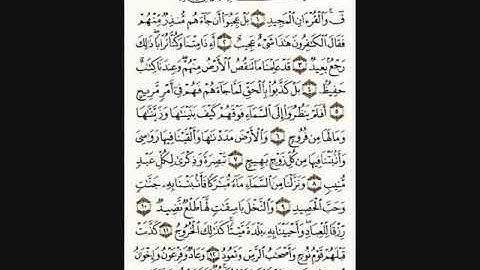 قٓ ۚ وَٱلْقُرْءَانِ ٱلْمَجِيدِ ١ بَلْ عَجِبُوٓا۟ أَن جَآءَهُم مُّنذِرٌ مِّنْهُمْ
فَقَالَ ٱلْكَٰفِرُونَ هَٰذَا شَىْءٌ عَجِيبٌ ٢ أَءِذَا مِتْنَا وَكُنَّا تُرَابًا ذَٰلِكَ
رَجْعٌۢ بَعِيدٌ ٣ قَدْ عَلِمْنَا مَا تَنقُصُ ٱلْأَرْضُ مِنْهُمْ وَعِندَنَا كِتَٰبٌ
حَفِيظٌۢ ٤ بَلْ كَذَّبُوا۟ بِٱلْحَقِّ لَمَّا جَآءَهُمْ فَهُمْ فِىٓ أَمْرٍ مَّرِيجٍ
٥ أَفَلَمْ يَنظُرُوٓا۟ إِلَى ٱلسَّمَآءِ فَوْقَهُمْ كَيْفَ بَنَيْنَٰهَا وَزَيَّنَّٰهَا
وَمَا لَهَا مِن فُرُوجٍ ٦ وَٱلْأَرْضَ مَدَدْنَٰهَا وَأَلْقَيْنَا فِيهَا رَوَٰسِىَ
وَأَنۢبَتْنَا فِيهَا مِن كُلِّ زَوْجٍۭ بَهِيجٍ ٧ تَبْصِرَةً وَذِكْرَىٰ لِكُلِّ عَبْدٍ
مُّنِيبٍ ٨ وَنَزَّلْنَا مِنَ ٱلسَّمَآءِ مَآءً مُّبَٰرَكًا فَأَنۢبَتْنَا بِهِۦ جَنَّٰتٍ
وَحَبَّ ٱلْحَصِيدِ ٩ وَٱلنَّخْلَ بَاسِقَٰتٍ لَّهَا طَلْعٌ نَّضِيدٌ ١٠
رِّزْقًا لِّلْعِبَادِ ۖ وَأَحْيَيْنَا بِهِۦ بَلْدَةً مَّيْتًا ۚ كَذَٰلِكَ ٱلْخُرُوجُ ١١ كَذَّبَتْ
قَبْلَهُمْ قَوْمُ نُوحٍ وَأَصْحَٰبُ ٱلرَّسِّ وَثَمُودُ ١٢ وَعَادٌ وَفِرْعَوْنُ وَإِخْوَٰنُ